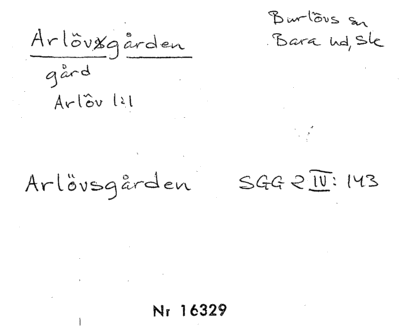 Arlövsgården
Burlövs sn
Bara hd, Sk
gård
Arlöv 1:1
Arlövsgården SGG 2 IV: 143
Nr 16329